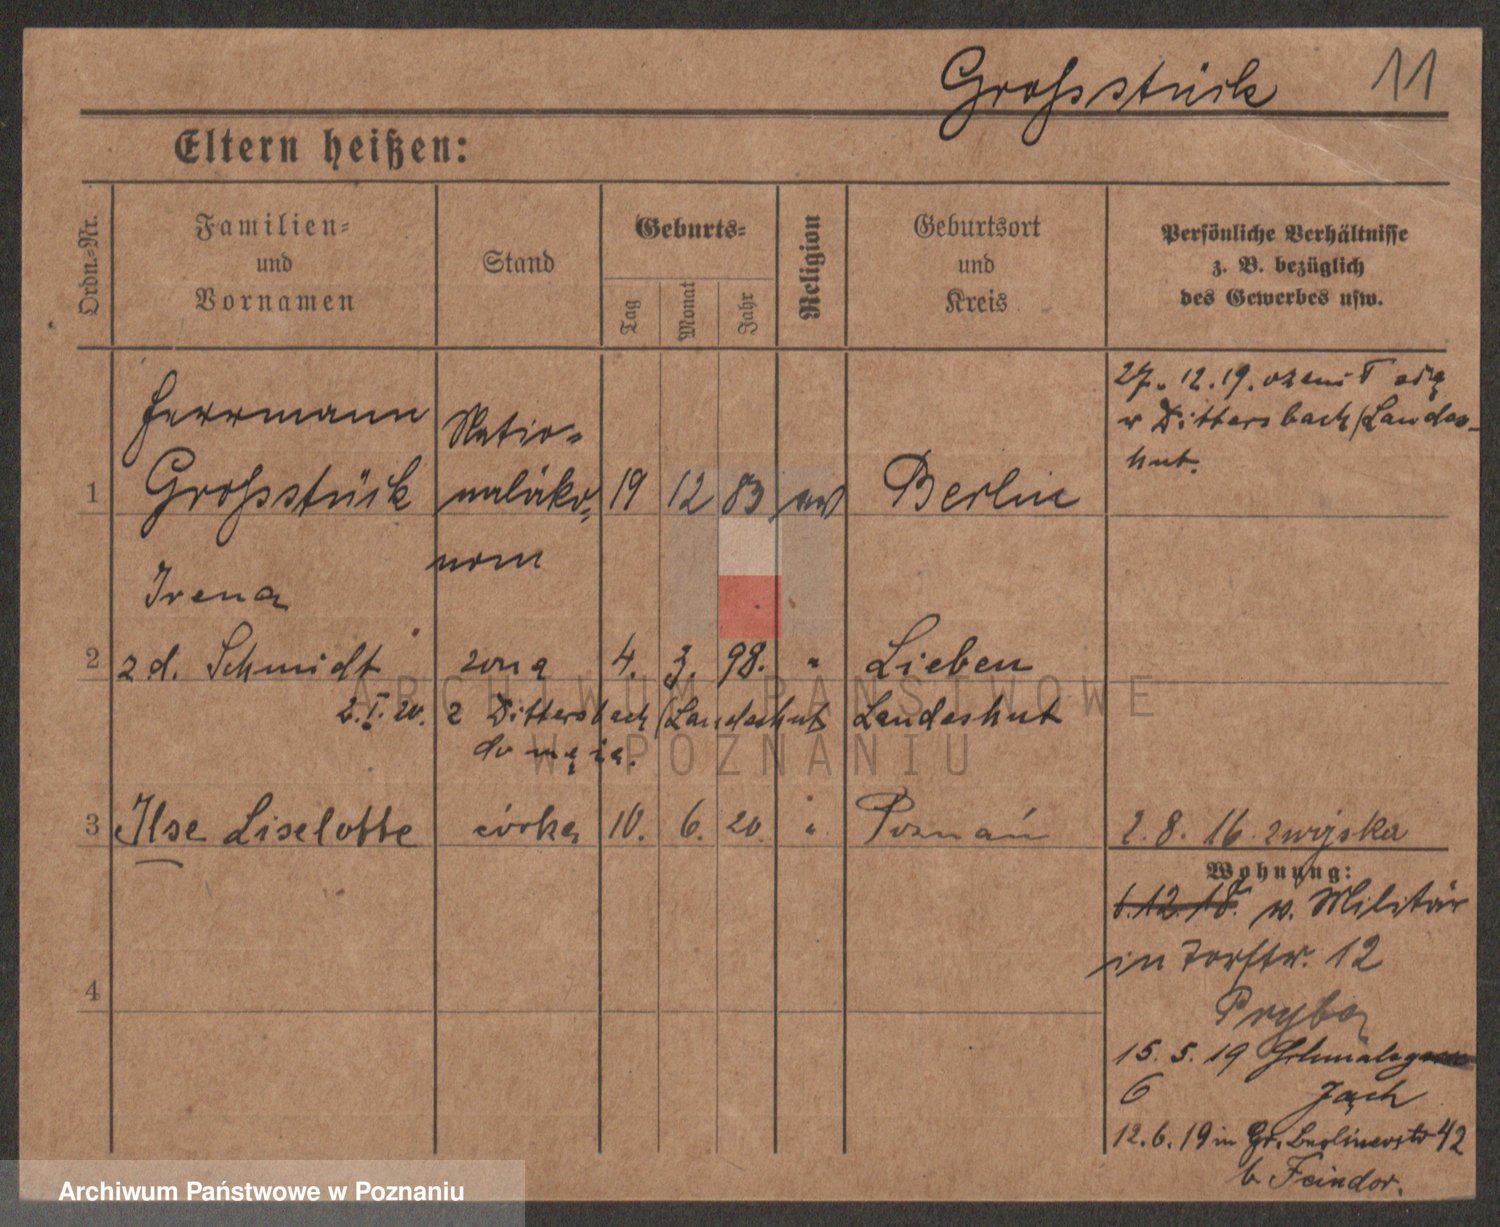 Großstück 11
Eltern heißen:
Ordn.=Nr.
Familien=
und
Vornamen
Stand
Geburts=
Tag
Monat
Jahr
Religion
Geburtsort
und
Kreis
Persönliche Verhältnisse
z. B. bezüglich
des Gewerbes usw.
27. 12. 19. ożenił się
w Dittersbach/Landes-
hut.
Herrmann
1 Großstück
Natio=
nalöko=
nom
19 12 83 ew Berlin
Irena
2 z d. Schmidt żona 4. 3. 98. " Lieben
2. I. 20. z Dittersbach/Landeshut Landeshut
do męża.
3 Ilse Liselotte córka 10. 6. 20. " Poznań
2. 8. 16
Wohnung:
6. 12. 18. v. Militär
in Torstr. 12
15. 5. 19
6
12. 6. 19 in Gr. Berlinerstr 42
b. Feindor.
4
ARCHIWUM PAŃSTWOWE
W POZNANIU
Archiwum Państwowe w Poznaniu